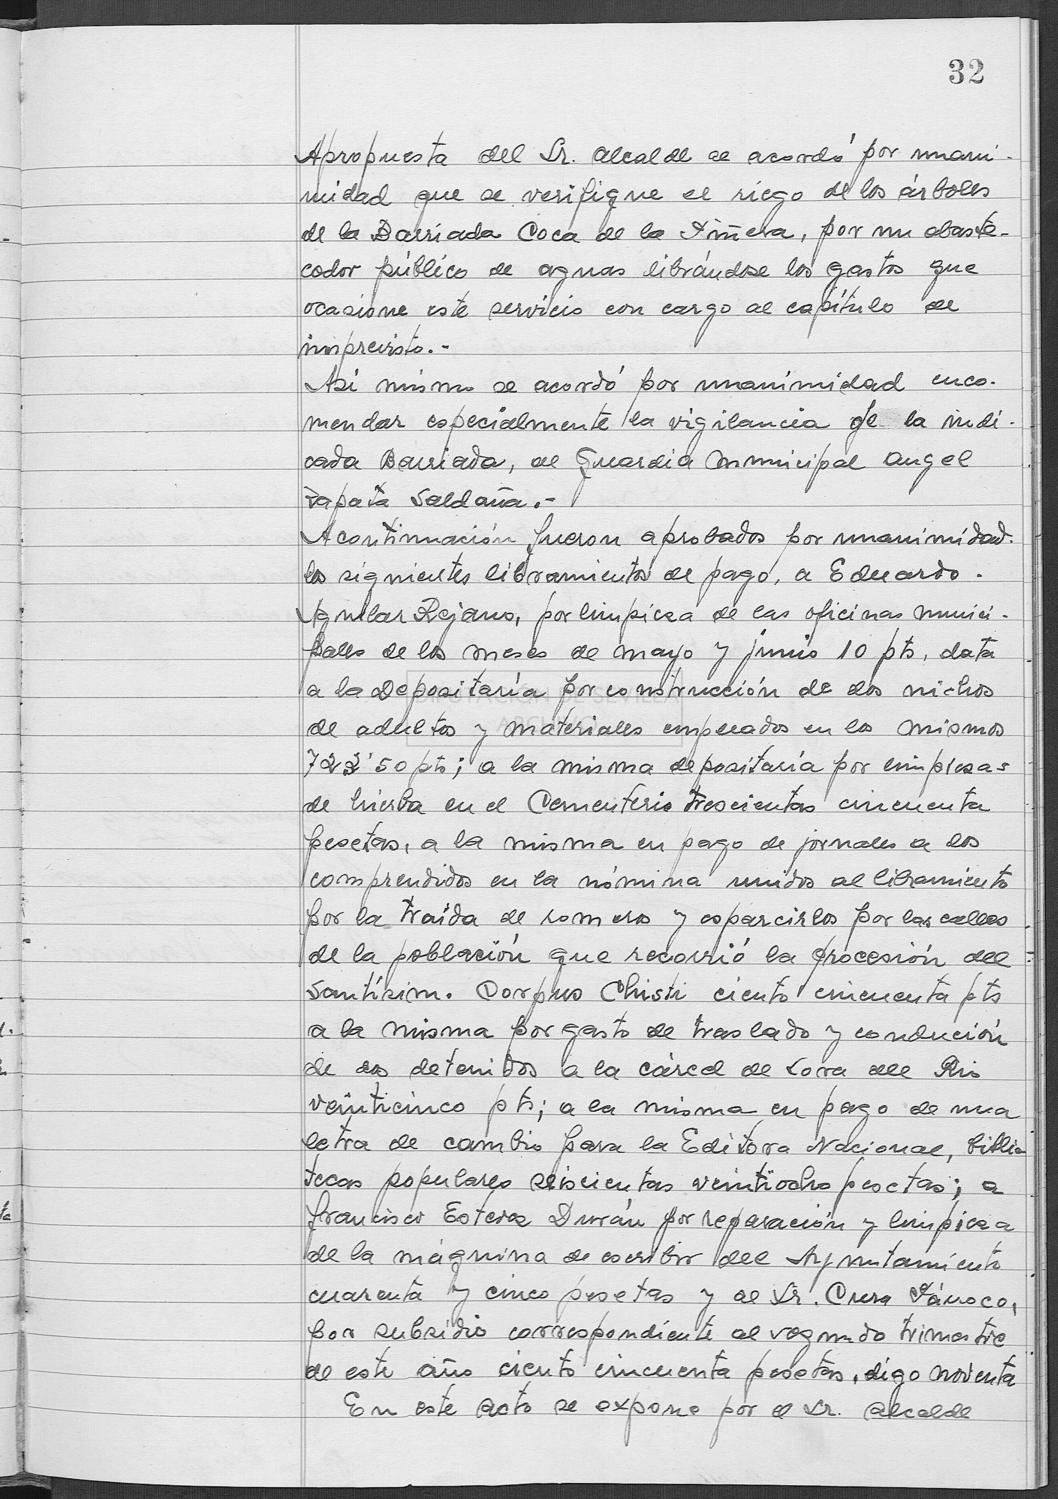 32
Apropuesta del Sr. Alcalde se acordó por unani-
midad que se verifique el riego de los árboles
de la Barriada Coca de la Piñera, por un abaste-
cedor público de aguas librándose los gastos que
ocasione este servicio con cargo al capítulo de
imprevisto.-
Asi mismo se acordó por unanimidad enco-
mendar especialmente la vigilancia de la indi-
cada Barriada, al Guardia Municipal Angel
Zapata Saldaña.-
A continuación fueron aprobados por unanimidad
los siguientes libramientos de pago, a Eduardo
Aguilar Rejano, por limpieza de las oficinas munici-
pales de los meses de mayo y junio 10 pts, data
a la Depositaría por construcción de dos nichos
de adultos y materiales empleados en los mismos
722'50 pts; a la misma depositaría por limpiezas
de hierba en el Cementerio trescientas cincuenta
pesetas, a la misma en pago de jornales a los
comprendidos en la nómina unidos al libramiento
por la traída de romero y esparcirlos por las calles
de la población que recorrió la procesión del
Santísim. Corpus Christi ciento cincuenta pts
a la misma por gasto de traslado y condución
de dos detenidos a la cárcel de Lora del Rio
veinticinco pts; a la misma en pago de una
letra de cambio para la Editora Nacional, biblio
tecas populares seiscientas veintiocho pesetas; a
Francisco Esteva Durán por reparación y limpieza
de la máquina de escribir del Ayuntamiento
cuarenta y cinco pesetas y al Sr. Cura Párroco,
por subsidio correspondiente al segundo trimestre
de este año ciento cincuenta pesetas, digo noventa
En este acto se expone por el Sr. Alcalde
DIPUTACIÓN DE SEVILLA
ARCHIVO